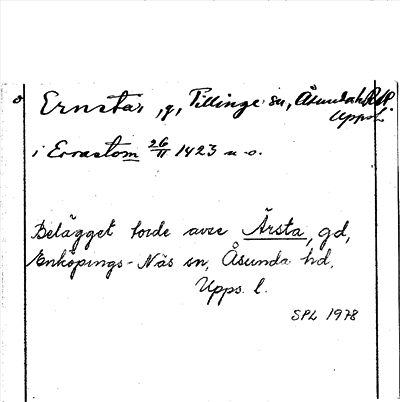 Ernstar, g, Tillinge sn, Åsunda hd
Upps. l.
i Ernastom 26/11 1423 n. o.
Belägget torde avse Ärsta, gd,
Enköpings-Näs sn, Åsunda hd,
Upps. l.
SPL 1978